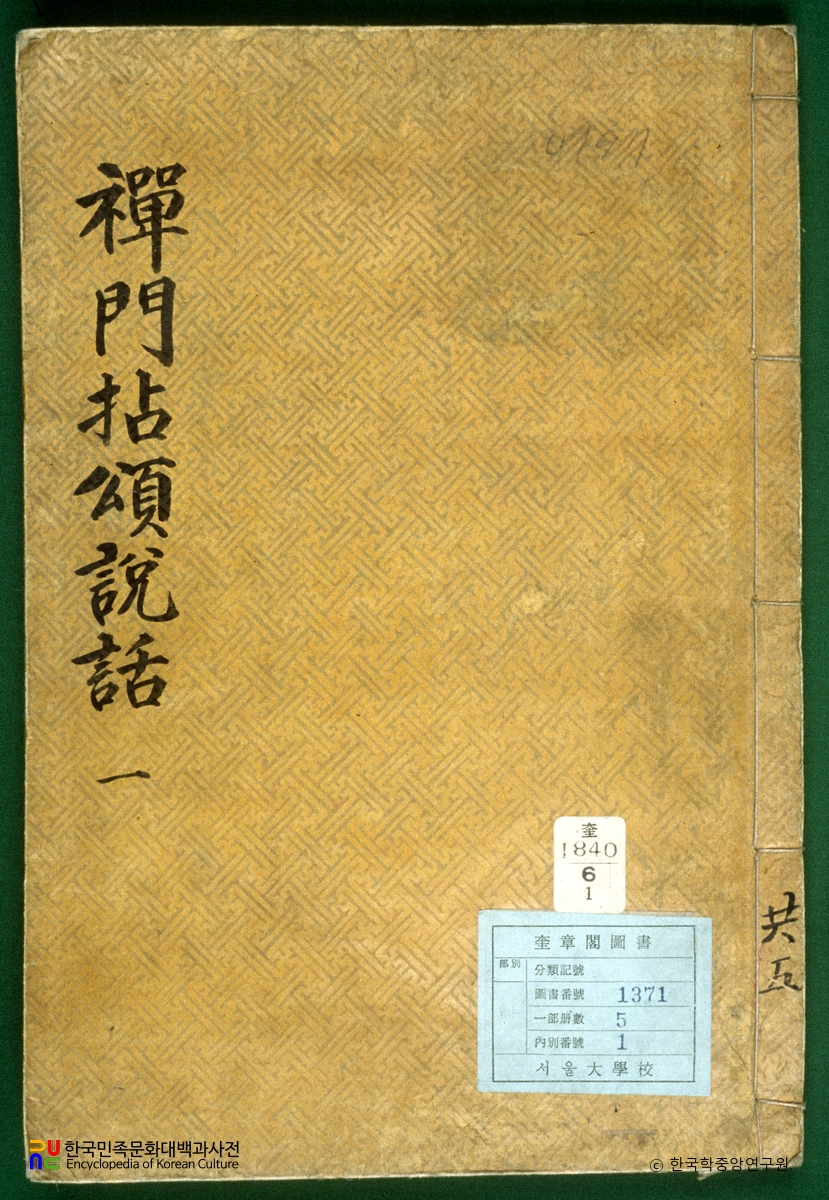 禪門拈頌說話 一
奎
1840
6
1
奎章閣圖書
部別
分類記號
圖書番號 1371
一部册數 5
內別番號 1
서울大學校
共五
한국민족문화대백과사전
Encyclopedia of Korean Culture
© 한국학중앙연구원